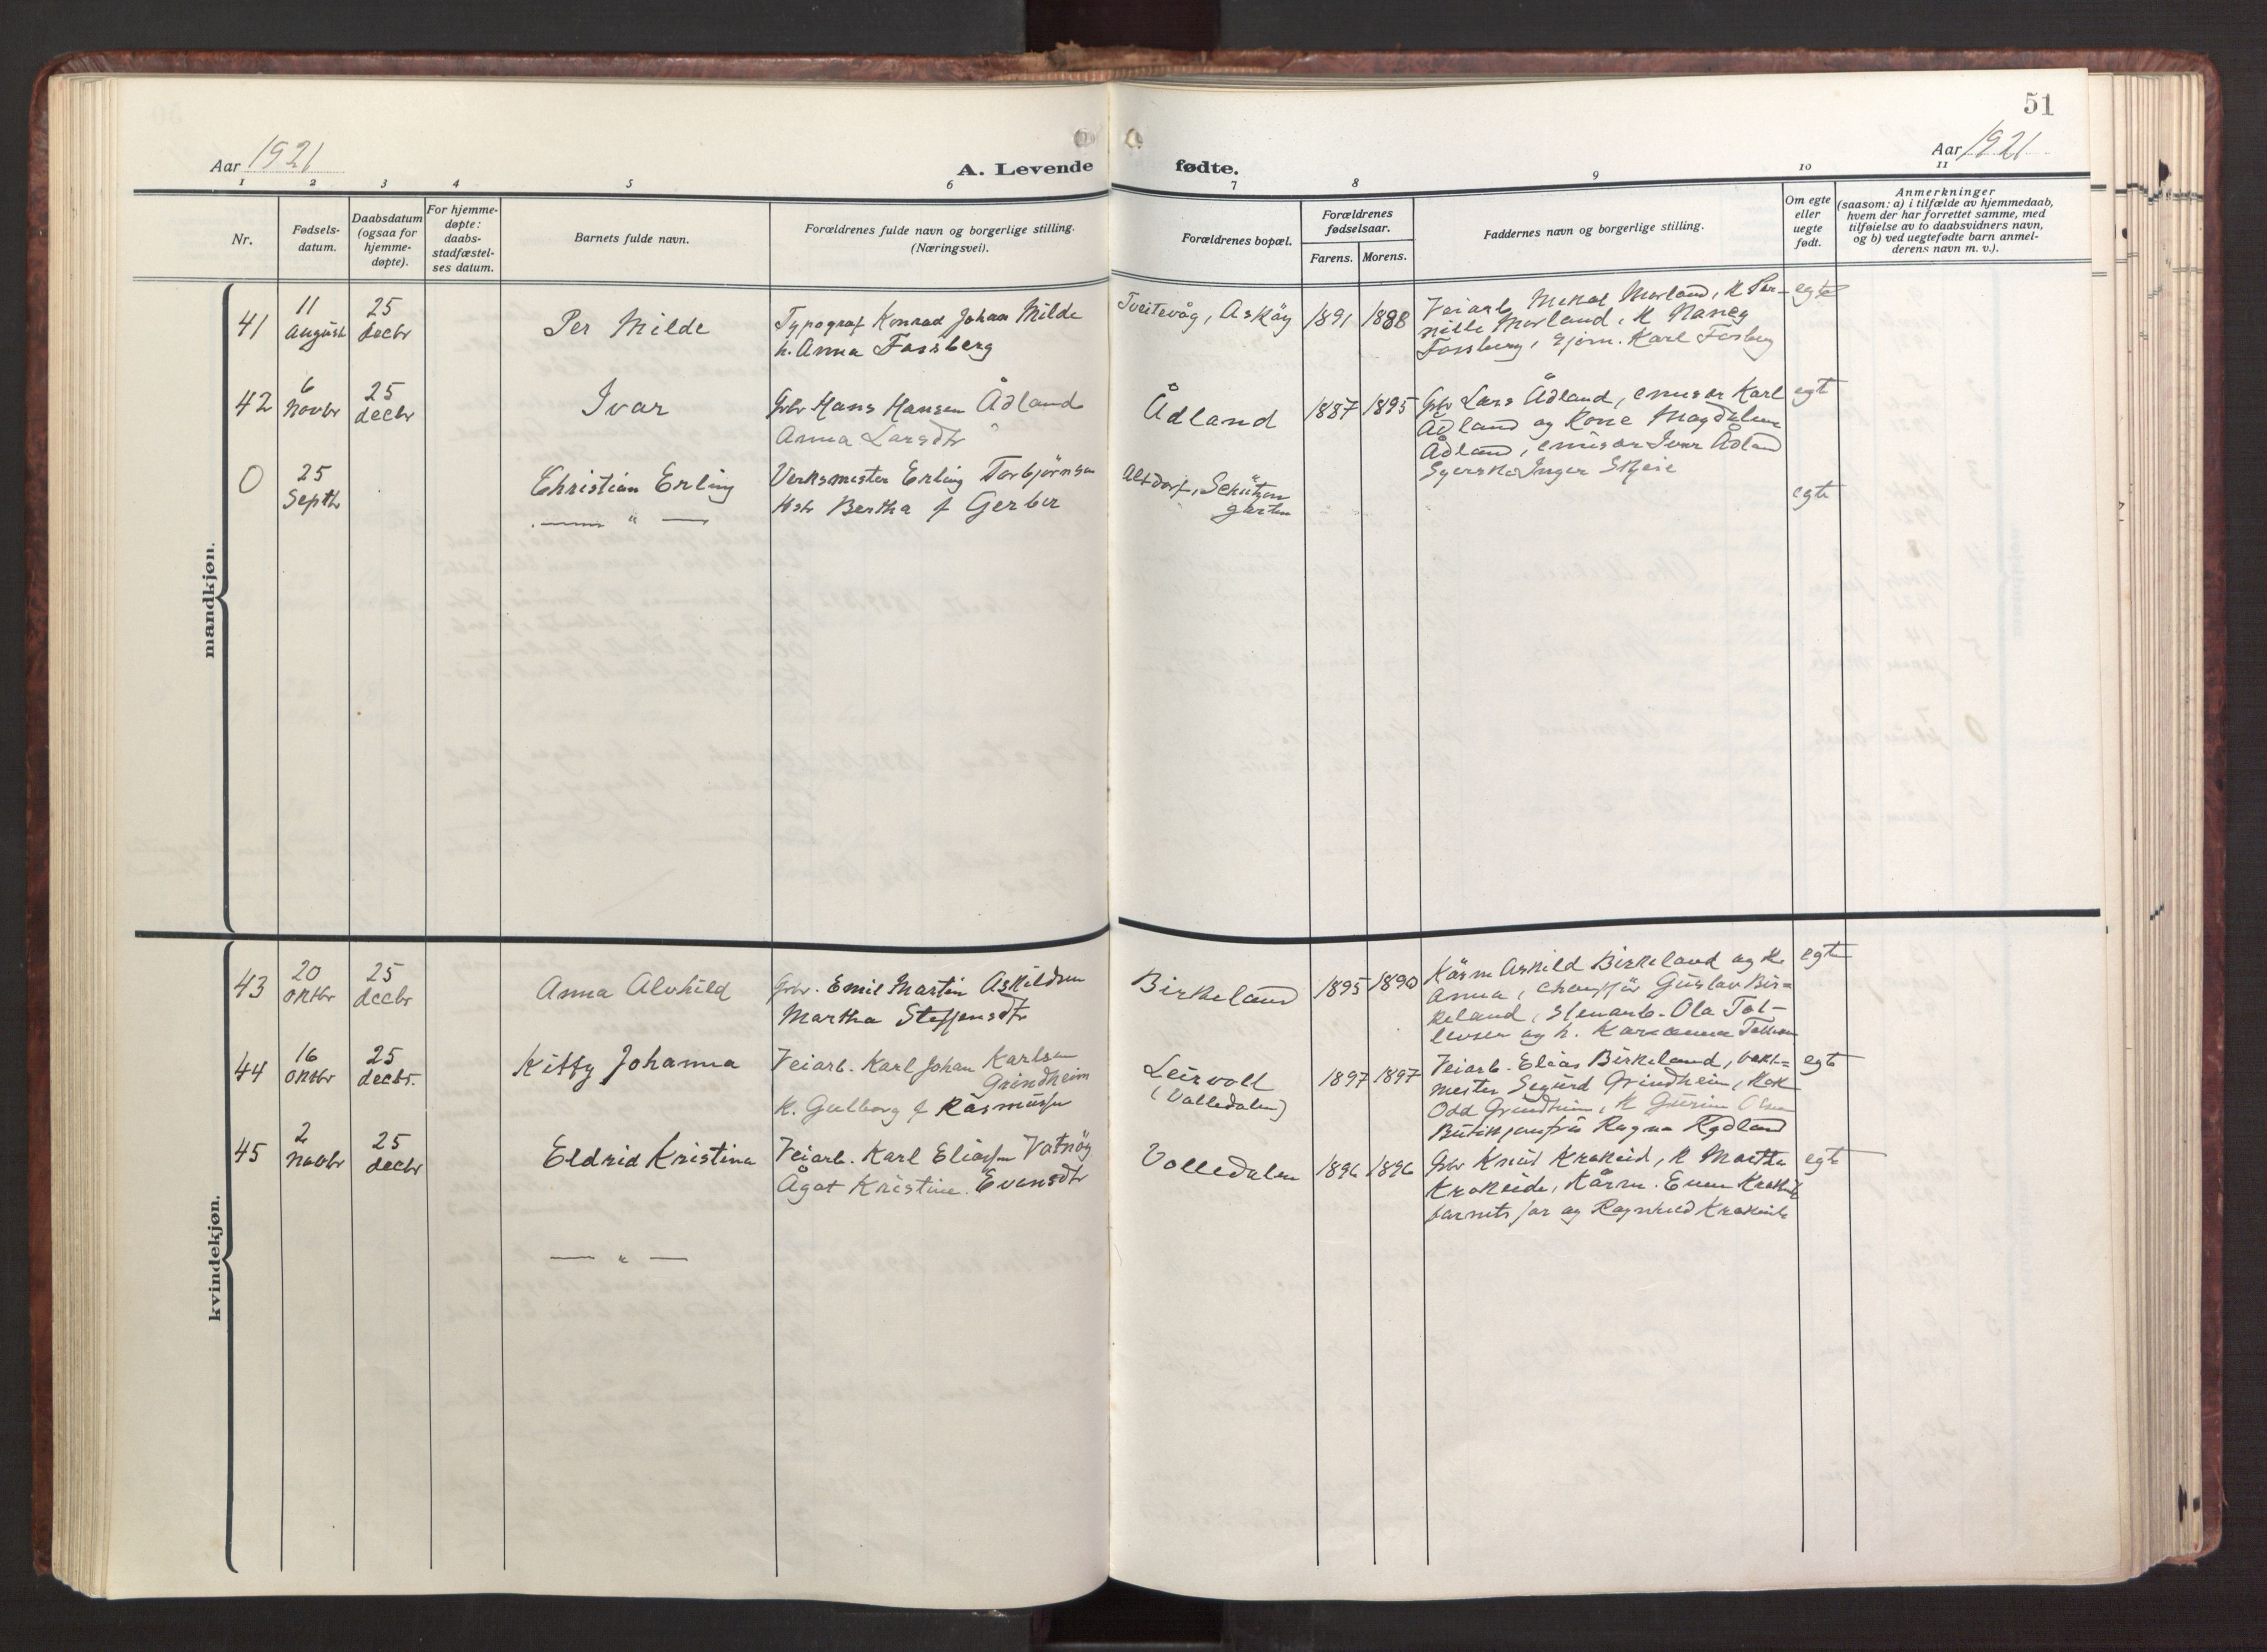 51
Aar 1921
A. Levende fødte.
Aar 1921
1 2 3 4 5 6 7 8 9 10 11
Nr.
Fødsels-
datum.
Daabsdatum
(ogsaa for
hjemme-
døpte).
For hjemme-
døpte:
daabs-
stadfæstel-
ses datum.
Barnets fulde navn.
Forældrenes fulde navn og borgerlige stilling.
(Næringsvei).
Forældrenes bopæl.
Forældrenes
fødselsaar.
Farens. Morens.
Faddernes navn og borgerlige stilling.
Om egte
eller
uegte
født.
Anmerkninger
(saasom: a) i tilfælde av hjemmedaab,
hvem der har forrettet samme, med
tilføielse av to daabsvidners navn,
og b) ved uegtefødte barn anmel-
derens navn m. v.).
mandkjøn.
41
11
August
25
decbr
Per Milde
Typograf Konrad Johan Milde
h. Anna Fossberg
Tveitevåg, Askøy
1891
1888
Veiarb. Mikal Morland, K Per-
nille Morland, K Nancy
Fossberg, Karl Fosberg
egte
42
6
Novbr
25
decbr
Ivar
Gbr Hans Hansen Ådland
Anna Larsdtr
Ådland
1887
1895
Gbr Lars Ådland, emisær Karl
Ådland og Kone Magdalene
Ådland, emisær Ivar Ådland
Syerske Inger Skeie
egte
0
25
Septbr
Christian Erling
— " —
Verksmester Erling Torbjørnsen
Hstr Bertha f Gerber
Altdorf, Schützen
garten
egte
kvindekjøn.
43
20
oktbr
25
decbr
Anna Alvhild
Gbr. Emil Martin Askildsen
Martha Steffensdtr
Birkeland
1895
1890
Kårm Askild Birkeland og K.
Anna, chauffør Gustav Bir=
keland, Stenarb. Ola Tol-
levsen og h.
egte
44
16
oktbr
25
decbr.
Kitty Johanna
Veiarb. Karl Johan Karlsen
Grindheim
K. Gulborg f Rasmussen
Leirvoll
(Valledalen)
1897
1897
Veiarb. Elias Birkeland,
mester Sigurd Grindheim,
Odd Grindheim, K Gurine Olsen
Butikjomfru Ragna Rydland
egte
45
2
Novbr
25
decbr
Eldrid Kristina
Veiarb. Karl Eliassen Vatnøy
Ågot Kristine Evensdtr
Volledalen
1896
1896
Gbr Knut Krokeid, K Martha
Krokeide, Kårm. Even Krokeide
barnets far og Ragnhild Krokeide
egte
— " —